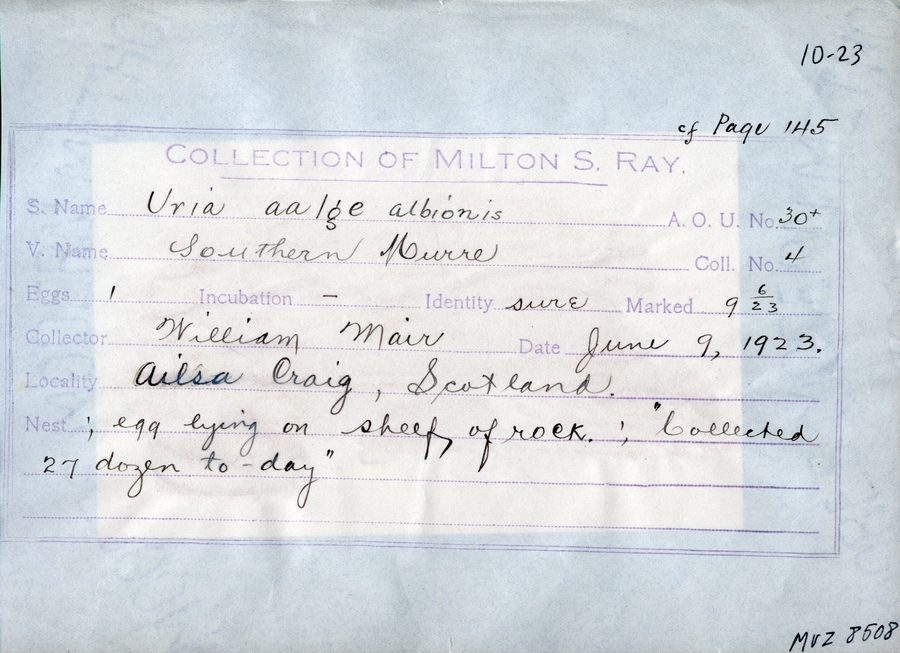 10-23
cf Page 145
COLLECTION OF MILTON S. RAY.
S. Name Uria aalge albionis A. O. U. No. 30+
V. Name Southern Murre Coll. No. 4
Eggs 1 Incubation - Identity sure Marked 9 6/23
Collector William Mair Date June 9, 1923.
Locality Ailsa Craig, Scotland.
Nest ; egg lying on shelf, of rock. ; "Collected
27 dozen to-day"
MVZ 8508